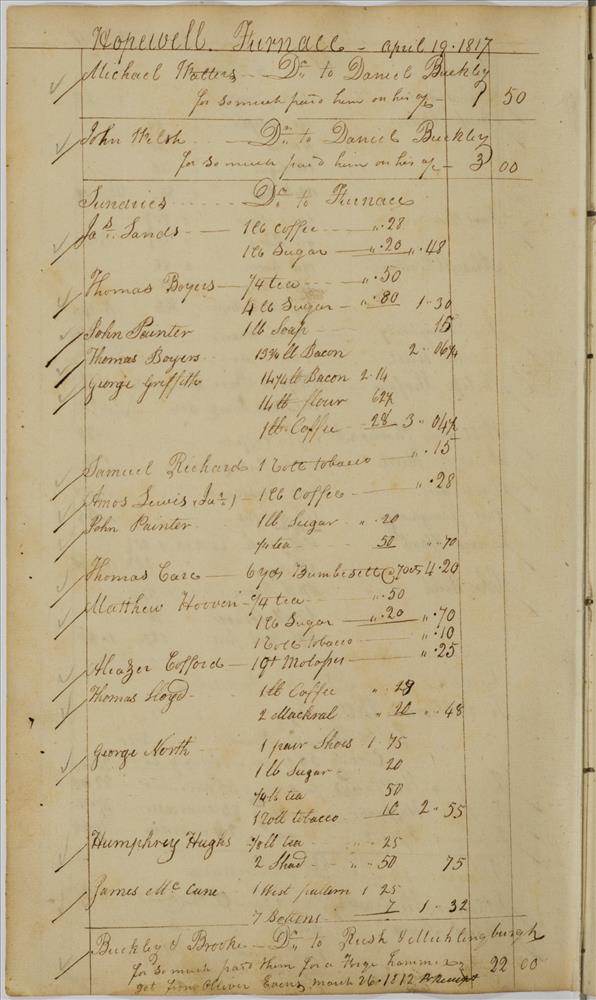 Hopewell Furnace - April 19. 1817
Michael Watters -- Dr. to Daniel Buckley
for so much paid him on his a/c - 7 50
John Welsh -- Dr. to Daniel Buckley
for so much paid him on his a/c - 3 00
Sundries ...... Dr. to Furnace
Jas. Sands -- 1 lb Coffee -- " .28
1 lb Sugar -- " .20 " .48
Thomas Boyers -- 1/4 tea --- " .50
4 lb Sugar - " .80 1 " 30
John Painter 1 lb Soap --- 15
Thomas Boyers 13 3/4 lb Bacon 2 " 06 1/4
George Griffith 14 1/4 lb Bacon 2.14
14 lb flour 62 1/2
1 lb Coffee - 28 3 " 04 1/2
Samuel Richard 1 Roll tobacco -- " .15
Amos Lewis (Jur.) - 1 lb Coffee -- " .28
John Painter 1 lb Sugar " .20
1/4 tea -- 50 " " 70
Thomas Care -- 6 yds Bumbesett @ 70 cts 4.20
Matthew Hooven - 1/4 tea -- " .50
1 lb Sugar -- " .20 " .70
1 Roll tobacco -- " .10
Aleazer Cofford -- 1 Qt Molases -- " .25
Thomas Lloyd - 1 lb Coffee " 28
2 Mackral " 20 " 48
George North - 1 pair Shoes 1 " 75
1 lb Sugar - 20
1/4 lb tea 50
1 Roll tobacco -- 10 2 " 55
Humphrey Hughs 1/8 lb tea -- " 25
2 Shad -- " " 50 75
James McCane - 1 West pattern 1 25
7 Bottons -- 7 1 " 32
Buckley & Brooke -- Dr. to Rush & Muhlingburgh
for so much paid them for a Forge hammer
got from Olliver Evens March 26. 1812 Receipt 22 00